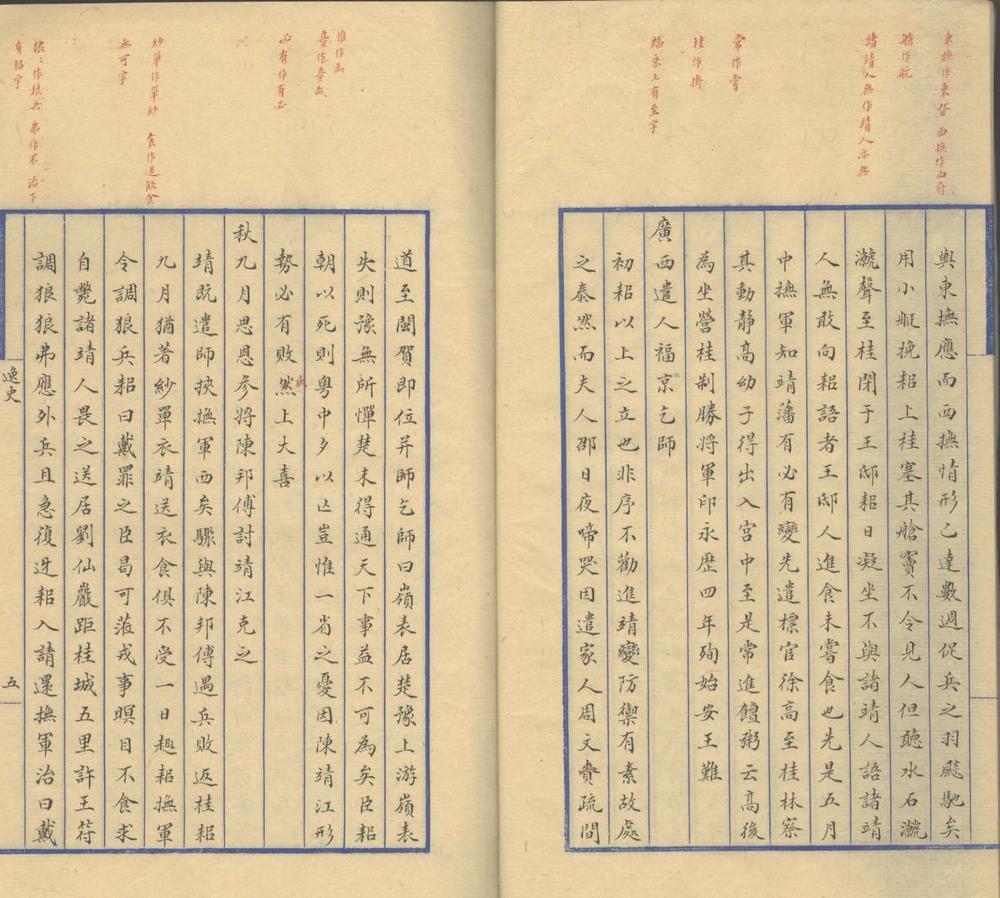 東撫作東督 西撫作西府
艙作舵
諸請人無作靖人亦無
常作嘗
桂作掛
福京上有至字
與東撫應而西撫情形已達數週促兵之羽飈馳矣
用小艇挽耜上桂塞其艙竇不令見人但聽水石漉
漉聲至桂閉于王邸耜日凝坐不與諸靖人語諸靖
人無敢向耜語者王邸人進食未嘗食也先是五月
中撫軍知靖藩有必有變先遣標官徐高至桂林察
其動靜高幼子得出入宮中至是常進饘粥云高後
為坐營桂制勝將軍印永歷四年殉始安王難
廣西遣人福京乞師
初耜以上之立也非序不勸進靖變防禦有素故處
之泰然而夫人邵日夜啼哭因遣家人周文賫疏間
惟作為
必有作有必
紗單作單紗 食作進飲食
無可字
狼狼作狼兵 弗作不 治下
有耜字
道至閩賀即位并師乞師曰嶺表居楚豫上游嶺表
失則豫無所憚楚未得通天下事益不可為矣臣耜
朝以死則粵中夕以亡豈惟一省之憂因陳靖江形
勢必有敗狀然上大喜
秋九月思恩參將陳邦傅討靖江克之
靖既遣師挾撫軍西矣驟與陳邦傅遇兵敗返桂耜
九月猶著紗單衣靖送衣食俱不受一日趣耜撫軍
令調狼兵耜曰戴罪之臣曷可蒞戎事瞑目不食求
自斃諸靖人畏之送居劉仙巖距桂城五里許王符
調狼狼弗應外兵且急復迓耜入請還撫軍治曰戴
逸史
五